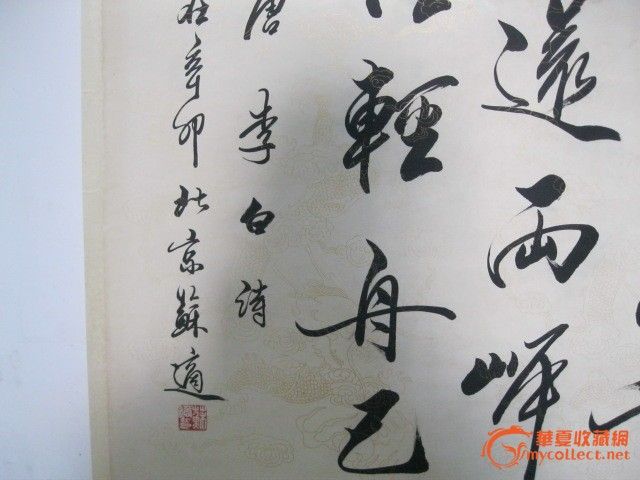 還兩岸
輕舟已
唐李白詩
在辛卯北京蘇適
華夏收藏網
mycollect.net